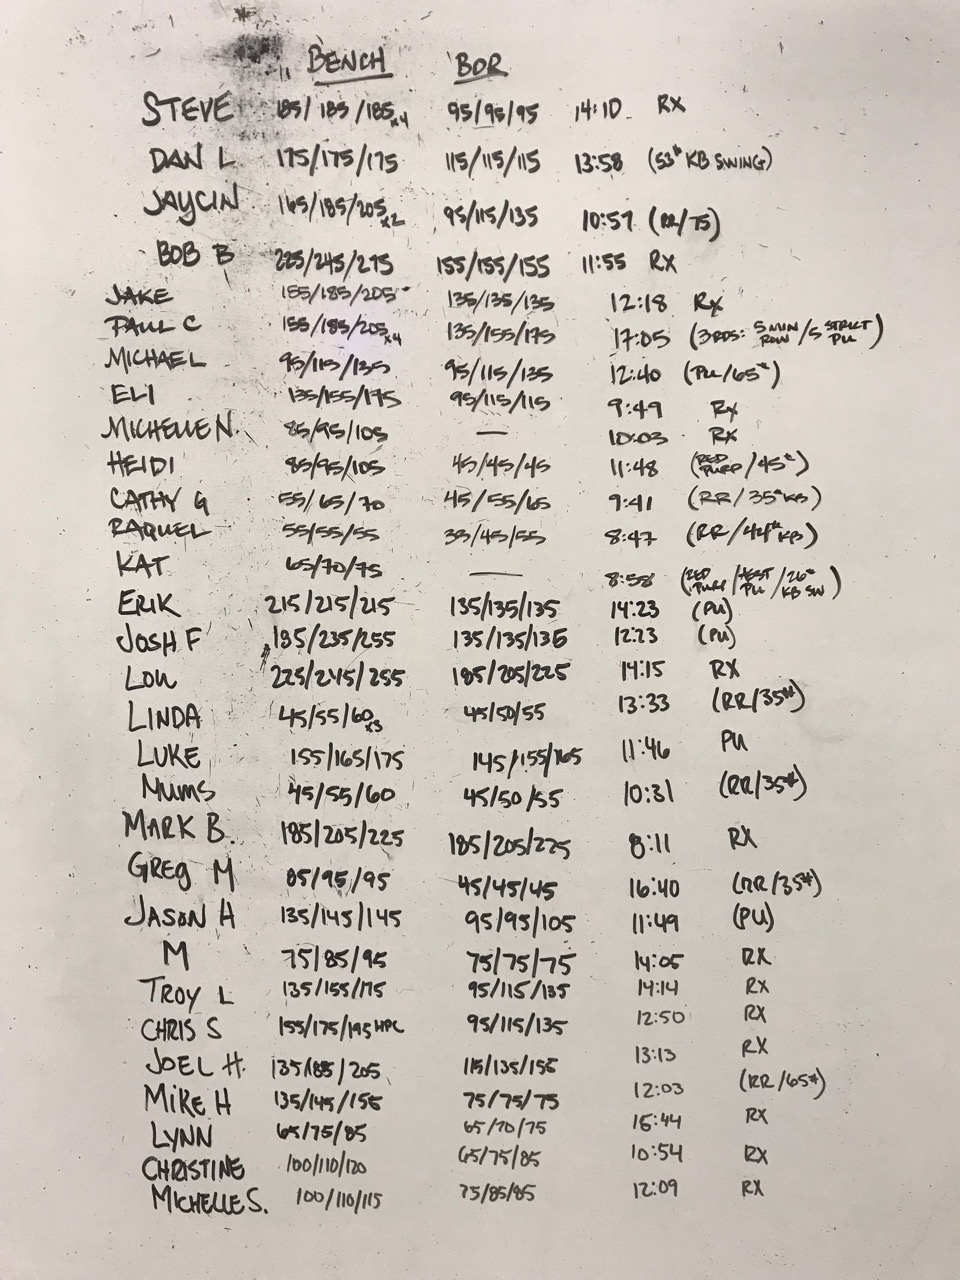 BENCH BOR
STEVE 185/185/185x4 95/95/95 14:10 RX
DAN L 175/175/175 115/115/115 13:58 (53# KB SWING)
JAYCIN 165/185/205x2 95/115/135 10:57 (RR/75)
BOB B 225/245/275 155/155/155 11:55 RX
JAKE 155/185/205 135/135/135 12:18 RX
PAUL C 155/185/205x4 135/155/175 17:05 (3RDS: 5 MIN ROW/5 STRICT PU)
MICHAEL 95/115/135 95/115/135 12:40 (PU/65#)
ELI 135/155/175 95/115/115 9:49 RX
MICHELLE N. 85/95/105 — 10:03 RX
HEIDI 85/95/105 45/45/45 11:48 (RED PURP/45#)
CATHY G 55/65/70 45/55/65 9:41 (RR/35#KB)
RAQUEL 55/55/55 35/45/55 8:47 (RR/44#KB)
KAT 65/70/75 — 8:58 (RED PURP/ASST PU/26# KB SW)
ERIK 215/215/215 135/135/135 14:23 (PU)
JOSH F 185/235/255 135/135/135 12:23 (PU)
LOU 225/245/255 185/205/225 14:15 RX
LINDA 45/55/60x3 45/50/55 13:33 (RR/35#)
LUKE 155/165/175 145/155/165 11:46 PU
MUMS 45/55/60 45/50/55 10:31 (RR/35#)
MARK B. 185/205/225 185/205/225 8:11 RX
GREG M 85/95/95 45/45/45 16:40 (RR/35#)
JASON H 135/145/145 95/95/105 11:49 (PU)
M 75/85/95 75/75/75 14:05 RX
TROY L 135/155/175 95/115/135 14:14 RX
CHRIS S 155/175/195 HPC 95/115/135 12:50 RX
JOEL H. 135/185/205 115/135/155 13:13 RX
MIKE H 135/145/155 75/75/75 12:03 (RR/65#)
LYNN 65/75/85 65/70/75 15:44 RX
CHRISTINE 100/110/120 65/75/85 10:54 RX
MICHELLE S. 100/110/115 75/85/85 12:09 RX